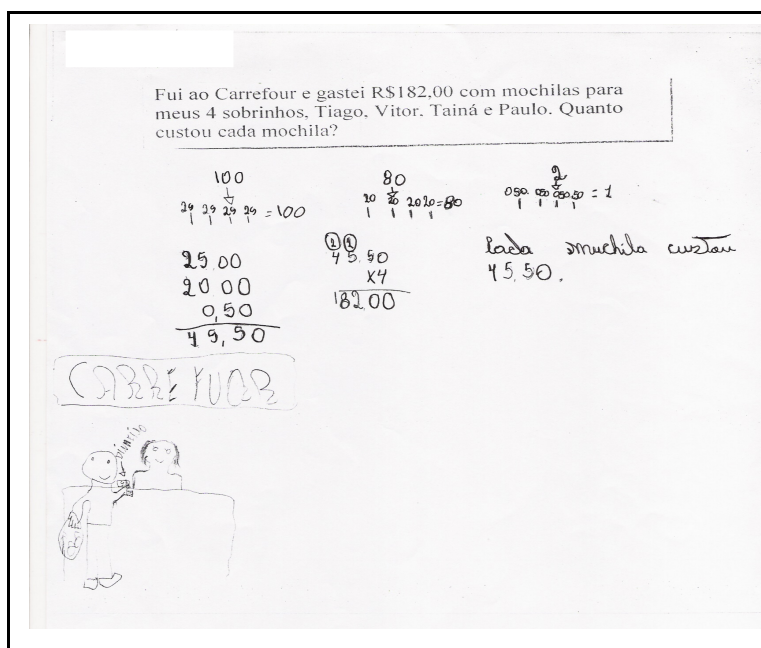 Fui ao Carrefour e gastei R$182,00 com mochilas para
meus 4 sobrinhos, Tiago, Vitor. Tainá e Paulo. Quanto
custou cada mochila?
100
25 25 25 25 = 100
80
20 20 20 20=80
2
050. 050 050.50 = 1
25.00
20 00
0,50
45,50
2 2
45.50
x4
182.00
Cada muchila custou
45.50.
CARREFUOR
DINHEIRO